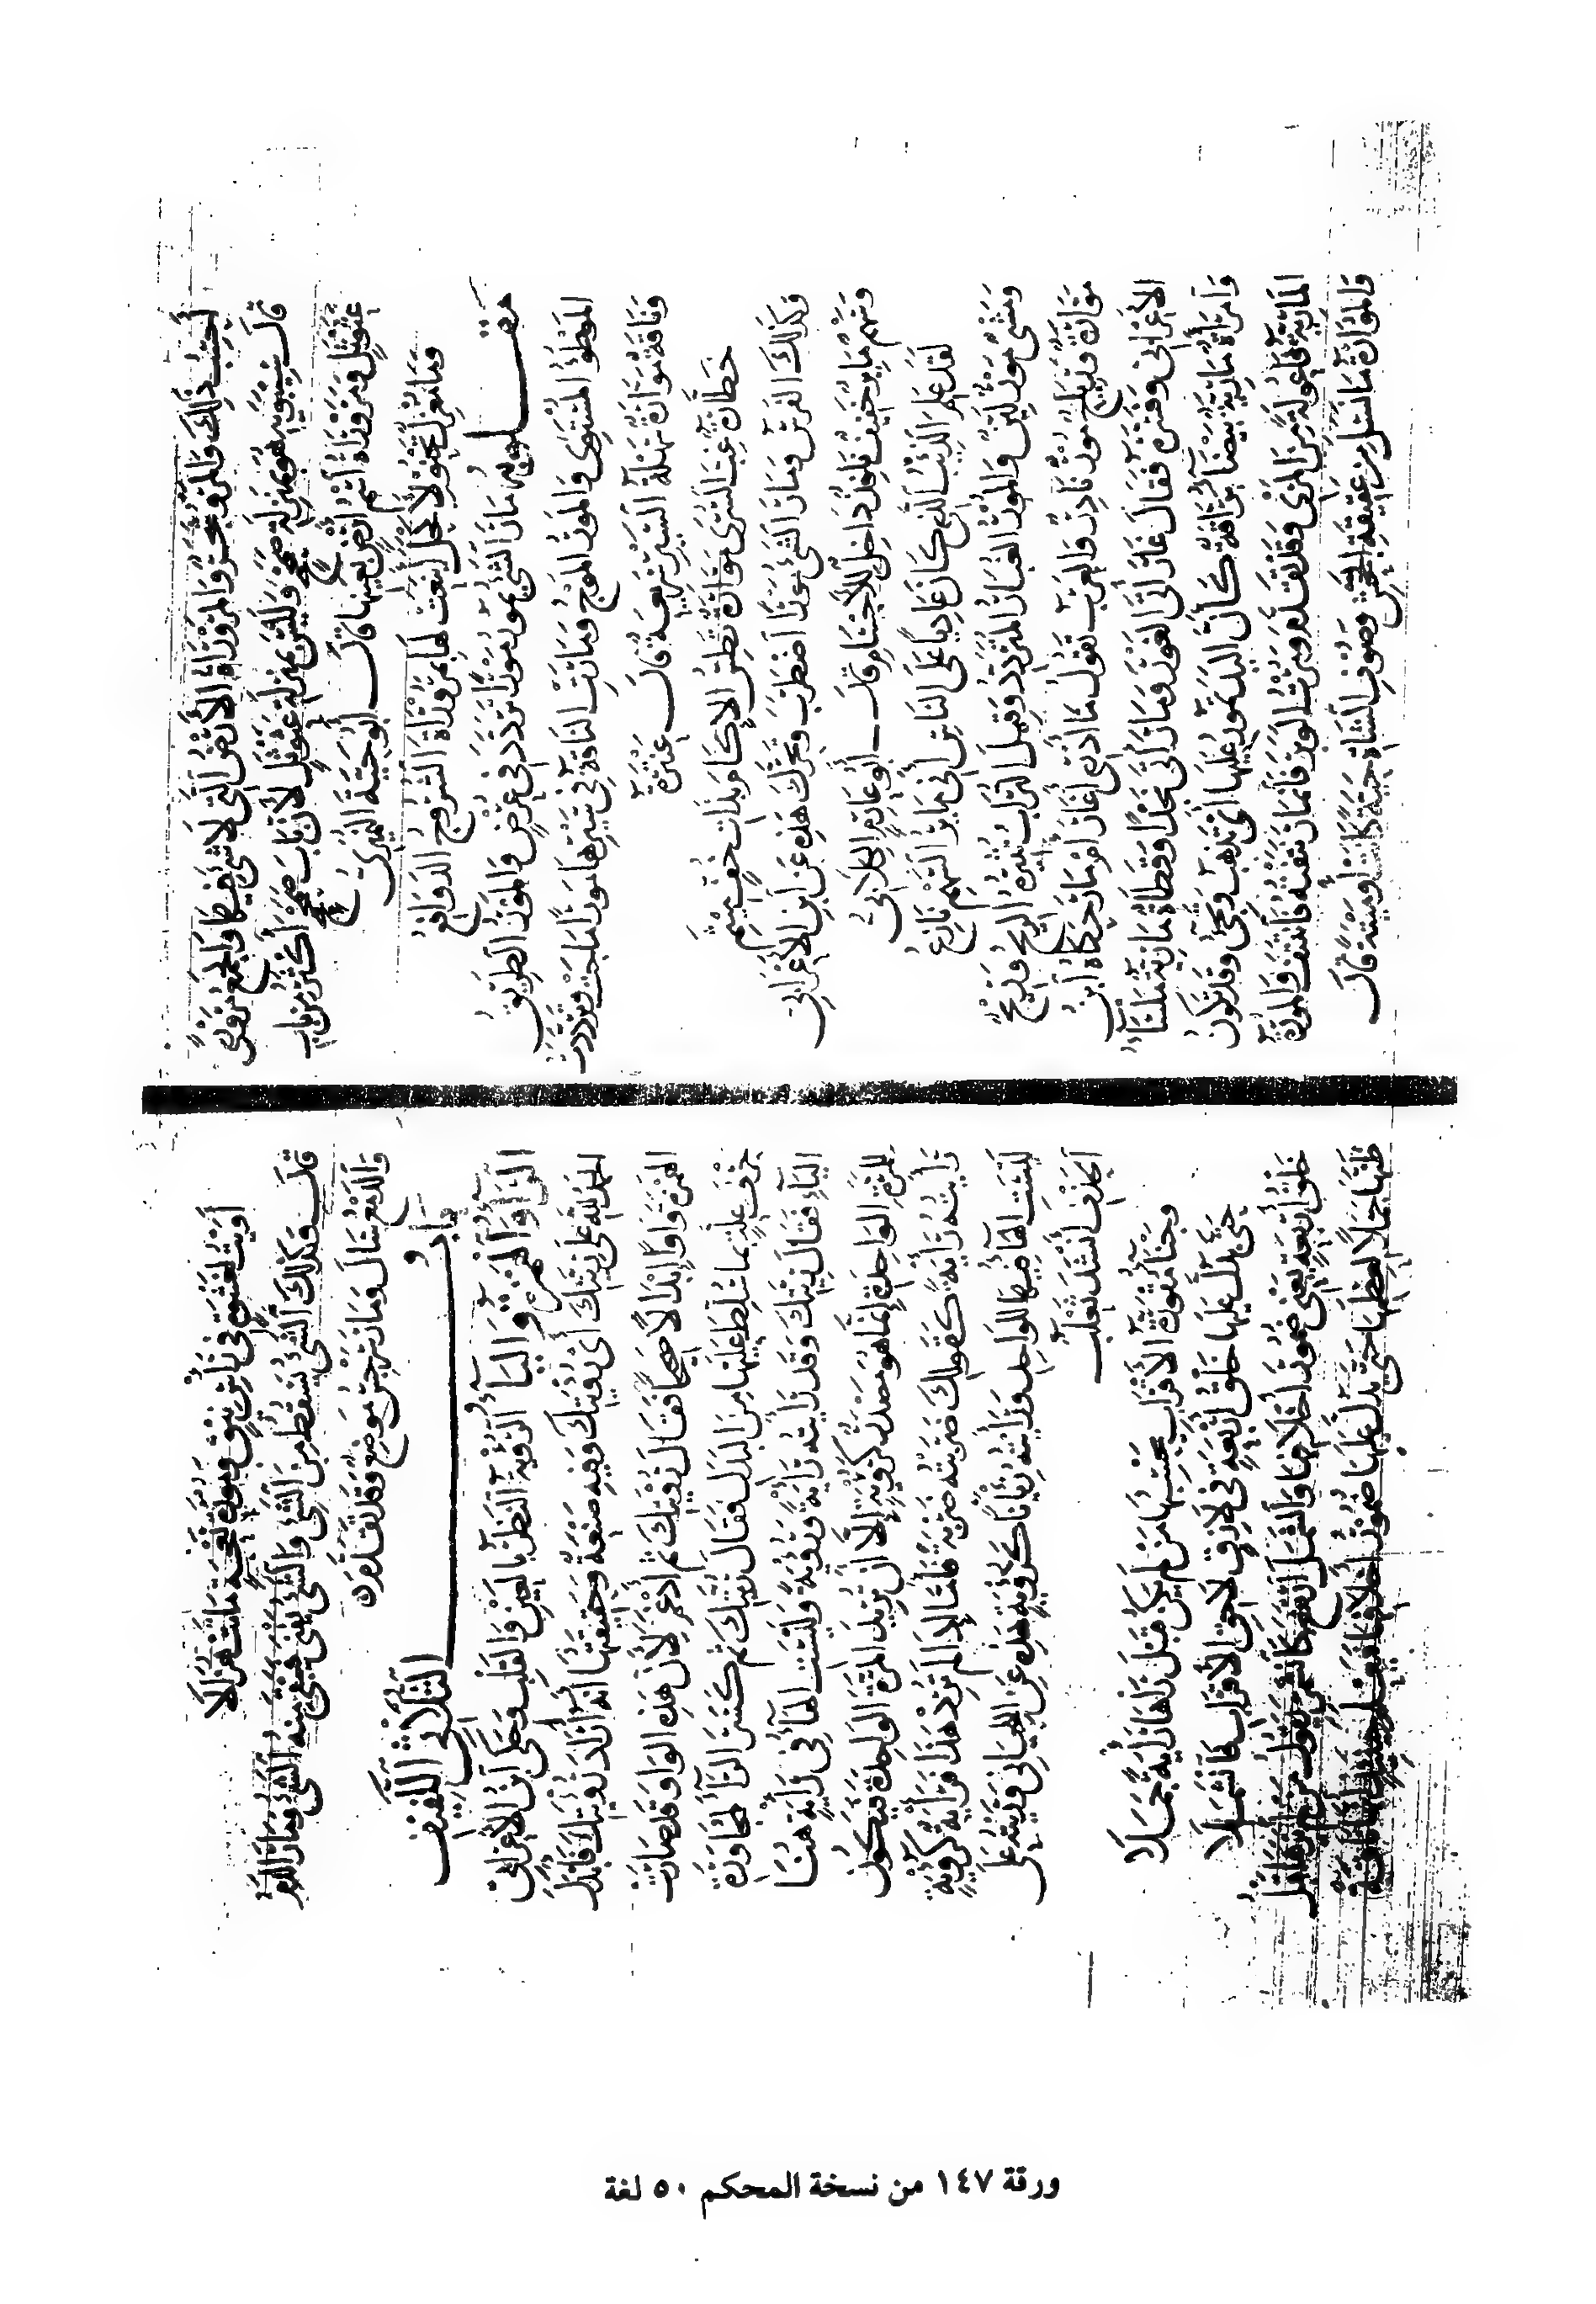 أحتسب ذلك والمرو شجر والمروراة الأرض التي لا شيء فيها والجمع مرورى
قال سيبويه هو بمنزلة صمحمح وليس بمنزلة عثوثل لأن باب صمحمح أكثر من باب
عثوثل ومروراة اسم أرض بعينها قال أبو حية النميري
وما مغزل تحنو لأكحل أينعت لها بمروراة الشروج الدوافع
مقلوبه مار الشيء يمور مورا تردد في عرض والمور الطريق
الموطوء المستوي والمور الموج ومارت الناقة في سيرها مورا ماجت وترددت
وناقة موارة سهلة السير سريعة قال عنترة
خطارة غب السرى موارة تطس الإكام بذات خف ميثم
وكذلك الفرس ومار الشيء مورا اضطرب وتحرك هذه عن ابن الأعرابي
وسهم مائر خفيف نافذ داخل في الأجسام قال أبو عامر الكلابي
لقد علم الذئب الذي كان عاديا على الناس أني مائر السهم نازع
ومشي مور لين والمور الغبار المتردد وقيل التراب تثيره الريح وريح
موارة وأرياح مور نادر والعرب تقول ما أدري أغار أم مار حكاه ابن
الأعرابي وفسره فقال غار أتى الغور ومار أتى نجدا وقطاة مارية ملساء
وامرأة مارية بيضاء براقة كأن اليد تمور عليها أي تذهب وتجيء وقد تكون
المارية فاعولة من المري وقد تقدم ومرت الوبر فانمار نتفته فانتتف والمورة
والموارة ما نسل من عقيقة الجحش وصوف الشاة حية كانت أو ميتة قال
أويت لعشوة في رأس نيق ومورة نعجة ماتت هزالا
قال وكذلك الشيء يسقط من الشيء والشيء يفنى فيبقى منه الشيء ومار الدم
والدمع سال ومار سرجس موضع وقد تقدم
باب الثلاثي اللفيف
الراء والهمزة والياء الرؤية النظر بالعين والقلب وحكى ابن الأعرابي
الحمد لله على ريتك أي رؤيتك وفيه صنعة وحقيقتها أنه أراد رؤيتك فأبدل
الهمزة واوا إبدالا صحيحا فقال رويتك ثم ادغم لأن هذه الواو قد صارت
حرف علة بما سلط عليها من البدل فقال ريتك ثم كسر الراء لمجاورة
الياء فقال ريتك وقد رأيته رأية ورؤية وليست الهاء في رأية هنا
للمرة الواحدة إنما هو مصدر كرؤية إلا أن تريد المرة الواحدة فيكون
رأيته رأية كقولك ضربته ضربة فأما إذا لم ترد هذا فرأية كرؤية
ليست الهاء فيها للواحد ورأيته رئيانا كرؤية هذه عن اللحياني وريته على
الحذف أنشد ثعلب
وجناء مقورة الأقراب يحسبها من لم يكن قبل راها رأية جملا
حتى يدل عليها خلق أربعة في لازق لاحق الأقراب فانشملا
خلق أربعة يعني ضمور أخلافها وانشمل ارتفع كانشمر يقول من لم يرها قبل
ظنها جملا لعظمها حتى يدل عليها ضمور أخلافها فيعلم حينئذ أنها ناقة
ورقة ١٤٧ من نسخة المحكم ٥٠ لغة